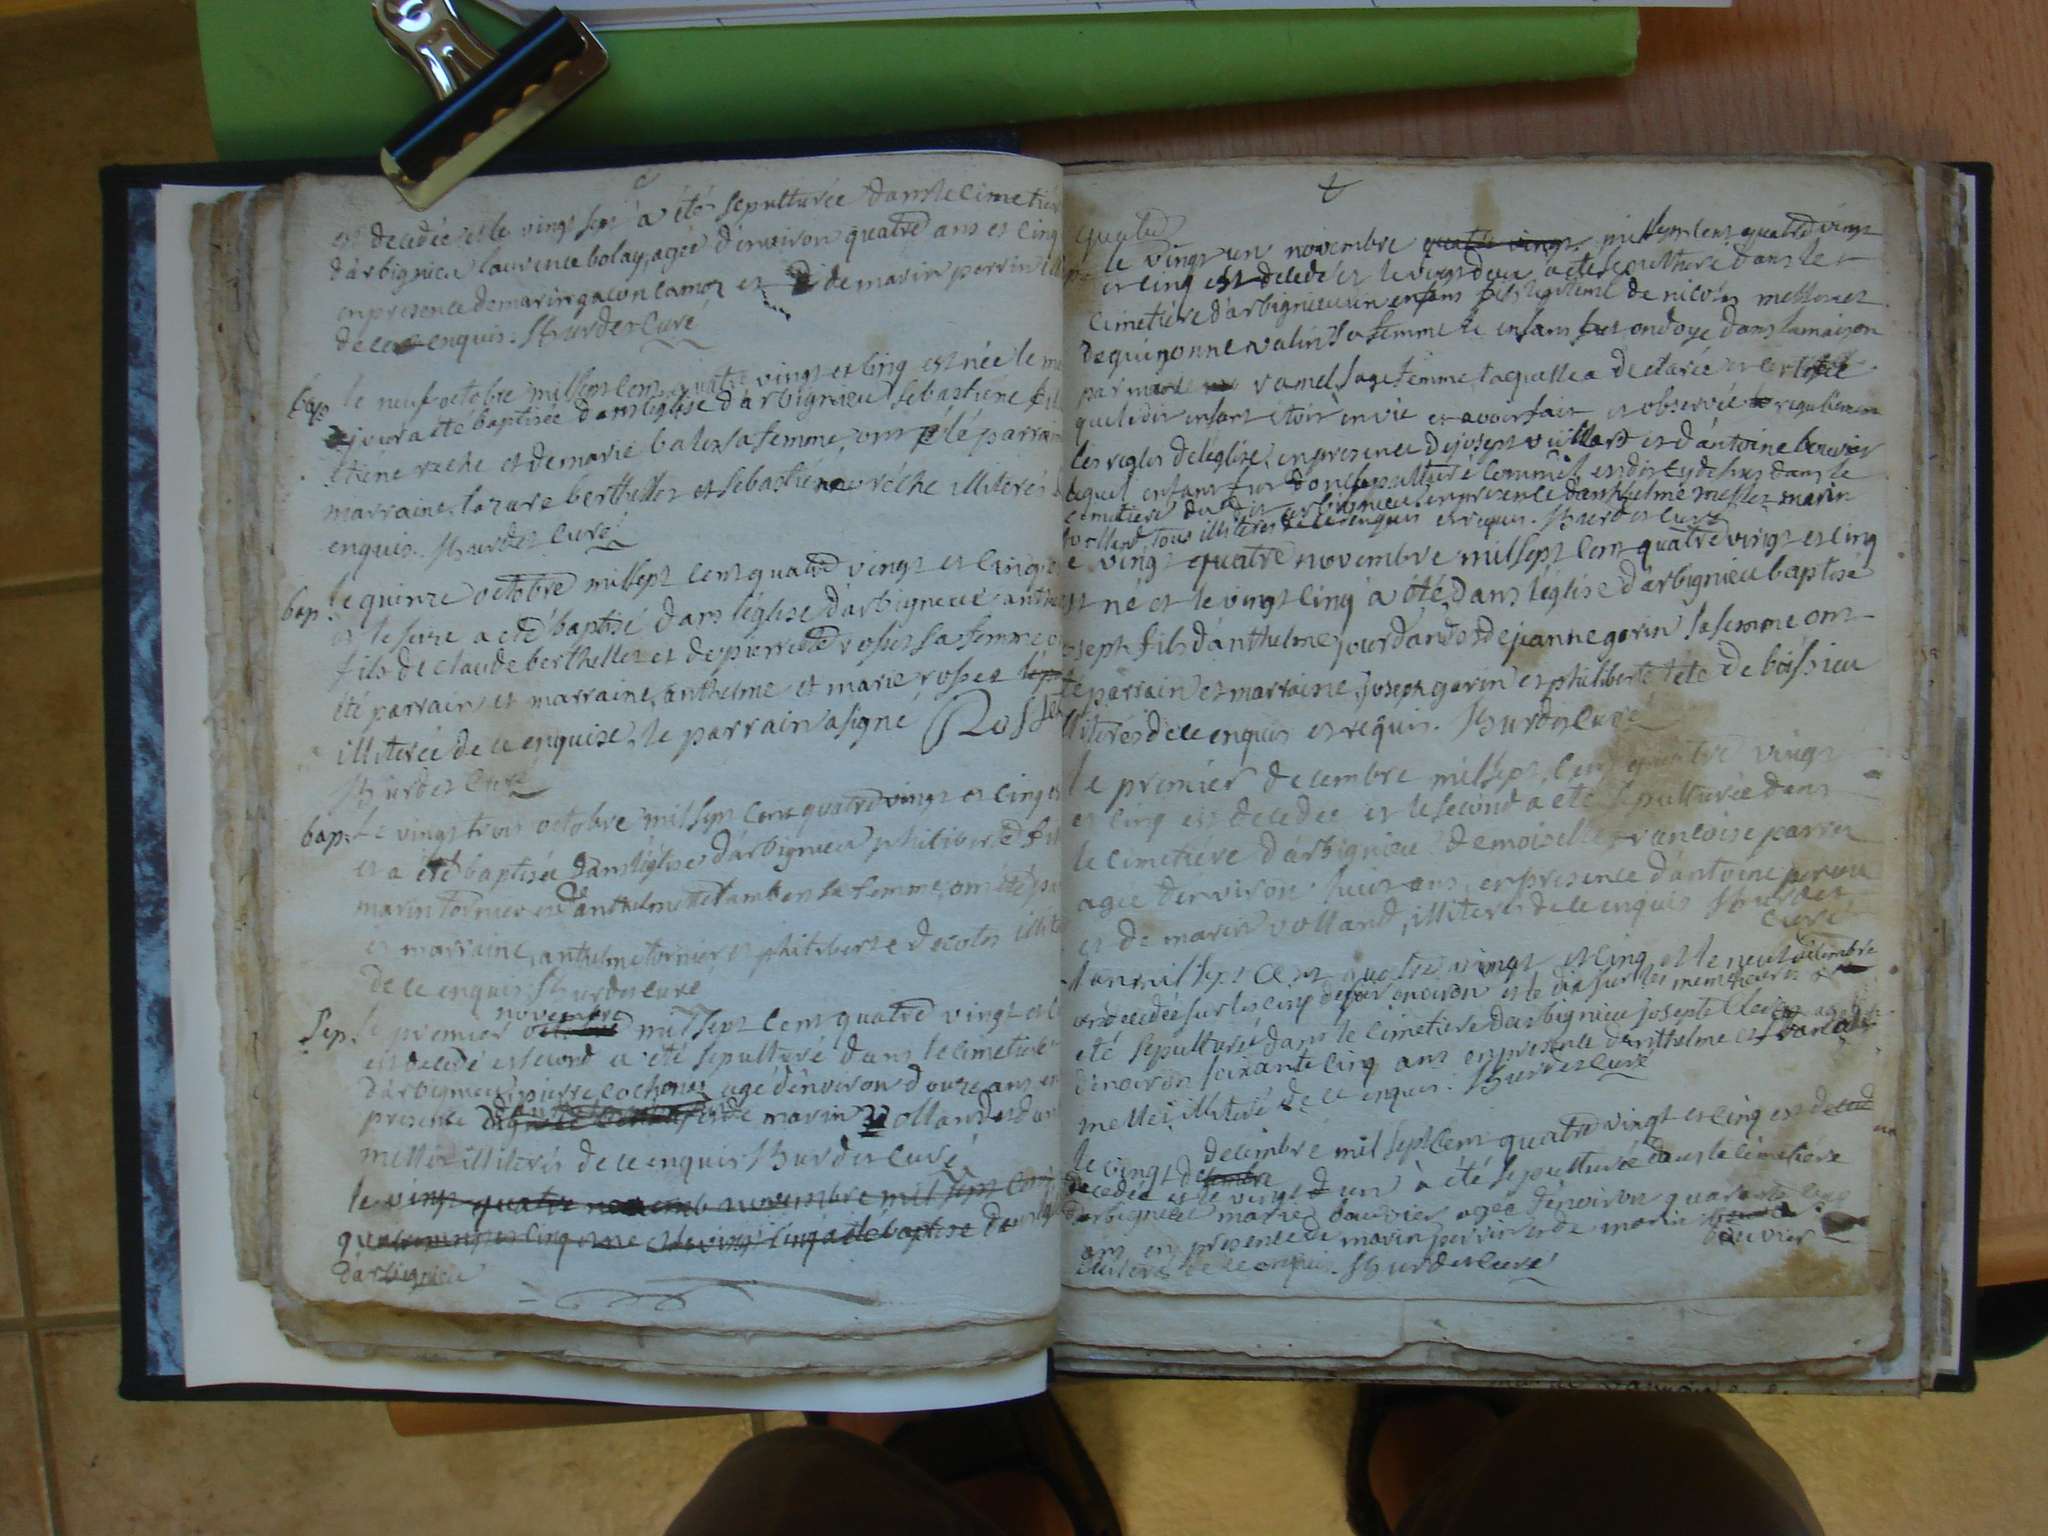 est decedée et le vingt sept a été sepulturée dans le cimetier
d'arbignieu laurence bolay, agée d'environ quatre ans et cinq
en presence de marin gacon camoz et de marin perrin
de ce enquis. Hurdes curé
bap. le neuf octobre mil sept cent quatre vingt et cinq est née le me
jour a été baptisée dans l'église d'arbignieu sebastiéne fil
etiéne reche et de marie balex sa femme, ont été parrain
marraine, lazare berthellet et sebastiéne réche illiterés
enquis. Hurdes curé
bap. le quinze octobre mil sept cent quatre vingt et cinq
et le seize a été baptisé dans l'église d'arbigneux anthe
fils de claude berthellet et de pierrette rosset sa femme o
été parrain et marraine, anthelme et marie rosset
illiterée de ce enquise, le parrain a signé Rosset
Hurdes curé
bap. Le vingt trois octobre mil sept cent quatre vingt et cinq es
et a été baptisée dans l'église d'arbignieu philiberte fil
marin tornier et d'anthelmette lambert sa femme, ont été par
et marraine, anthelme tornier et philiberte decotes illite
de ce enquis Hurdes curé
novembre
Sep. le premier octobre mil sept cent quatre vingt et c
est decedé et second a été sepulturé dans le cimetiere
d'arbignieu, pierre cochonat agé d'environ douze ans en
presence de marin volland et d'an
mellié illiterés de ce enquis Hurdes curé
le vingt quatre novemb novembre mil sept cent
quatre vingt et cinq est né et le vingt cinq a été baptisé dans
d'arbignieu
quatre
le vingt un novembre quatre vingt mil sept cent quatre vingt
et cinq est decedé et le vingt deux a été sepulturé dans le
cimetiére d'arbignieu un enfant fils legitime de nicolas
de guigonne valin sa femme le enfant fut ondoyé dans la maison
par vamel sage femme, laquelle a declarée et certifié
que le dit enfant étoit en vie et avoir fait et observée regulierement
les regles de l'eglise, en presence de joseph vuillard et d'antoine bouvier
lequel enfant fut donc sepulturé comme il est dit cy dessus dans le
cimetiere du dit arbignieu en presence d'anthelme mellet marin
volland tous illiterés de ce enquis et requis. Hurdes curé
le vingt quatre novembre mil sept cent quatre vingt et cinq
est né et le vingt cinq a été dans l'église d'arbignieu baptisé
joseph fils d'anthelme jourdan et de jeanne garin sa femme ont
été parrain et marraine, joseph garin et philiberte tête de boissieu
illiterés de ce enquis et requis. Hurdes curé
le premier decembre mil sept cent quatre vingt
et cinq est decedée et le second a été sepulturée dans
le cimetiére d'arbignieu demoiselle francoise parra
agée d'environ huit ans, en presence d'antoine
et de marin volland, illiterés de ce enquis Hurdes
curé
l'an mil sept cent quatre vingt et cinq et le neuf décembre
est decedée sur les cinq de soir environ et le dix sur les memes heures a
été sepulturé dans le cimetiere d'arbignieu josepte
d'environ soixante cinq ans en presence d'anthelme et
mellet, illiteré de ce enquis. Hurdes curé
decembre mil sept cent quatre vingt et cinq est
le vingt decembre
decedée et le vingt et un a été sepulturée dans le cimetiére
d'arbignieu marie bouvier agée d'environ quarante cinq
ans en presence de marin perrin et de marin
bouvier
illiterés de ce enquis. Hurdes curé